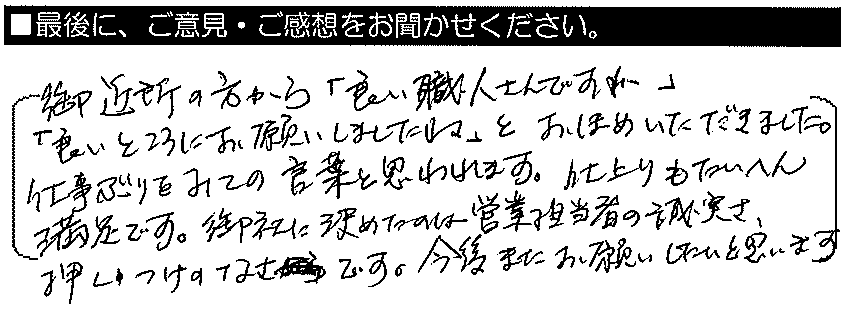 ■最後に、ご意見・ご感想をお聞かせください。
御近所の方から「良い職人さんですね」
「良いところにお願いしましたね」と おほめいただきました。
仕事ぶりをみての言葉と思われます。仕上りもたいへん
満足です。御社に決めたのは営業担当者の誠実さ、
押しつけのなさです。今後またお願いしたいと思います